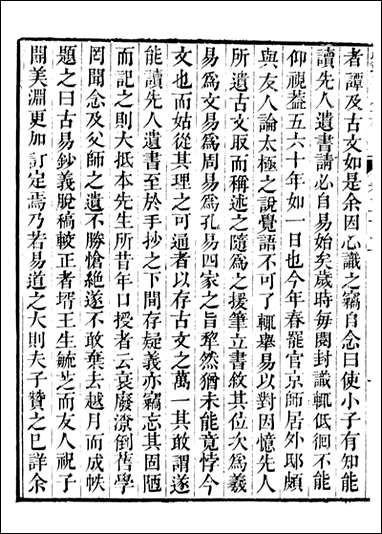 者譚及古文如是余因心識之竊自念曰使小子有知能
讀先人遺書請必自易始矣歲時每開封識輒低徊不能
仰視葢五六十年如一日也今年春罷官京師居外邸頗
與友人論太極之說覺語不可了輒舉易以對因憶先人
所遺古文取而稱述之隨爲之援筆立書敘其位次爲羲
易爲文易爲周易爲孔易四家之旨犁然猶未能竟悖今
文也而姑從其理之可通者以存古文之萬一其敢謂遂
能讀先人遺書至於手抄之下間存疑義亦竊忘其固陋
而記之則大抵本先生所昔年口授者云哀廢潦倒舊學
罔聞念及父師之遺不勝愴絕遂不敢棄去越月而成帙
題之曰古易鈔義脫稿較正者壻王生毓芝而友人祝子
開美淵更加訂定焉乃若易道之大則夫子贊之巳詳余